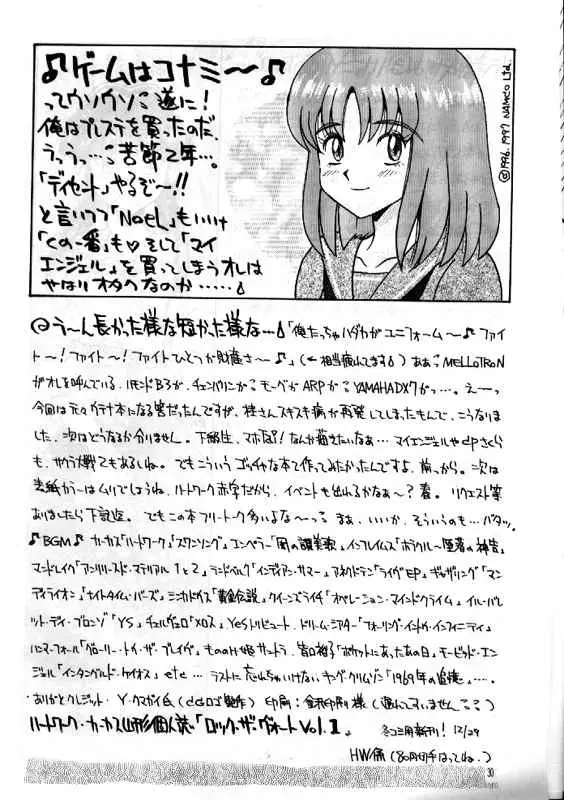 ♪ゲームはコナミ〜♪
ってウソウソ 遂に!
俺はプレステを買ったのだ.
うっうっ… 苦節2年….
「ディセント」やるぞ〜!!
と言いつつ「NoeL」もいいけ
「くの一番」も♡そして「マイ
エンジェル」を買ってしまうオレは
やはりオタクなのか……
©1996, 1997 NAMCO Ltd.
@う〜ん長かった様な短かった様な…「俺たっちゃハダカがユニフォーム〜♪ファイ
ト〜!ファイト〜!ファイトひとつが財産さ〜♪」(←相当疲れてます)ああ MELLOTRON
がオレを呼んでいる. ハモンドB3が, チェンバリンが モーグが ARPが YAMAHA DX7がっ…. えーっ
今回は元々グチャ本になる筈だったんですが, 桂さんスキスキ病が再発してしまったもんで, こうなりま
した. 次はどうなるか分りません. 下級生, マホ なんか描きたいなぁ… マイエンジェルやdpさくら
も, サクラ大戦2もあるしね. でもこういうゴッチャな本て作ってみたかったんですよ. 前っから. 次は
表紙カラーはムリでしょうね. ハートワーク赤字だから. イベントも出れるかなぁ〜? 春. リクエスト等
ありましたら下記迄. でもこの本フリートーク多いよな〜っ まぁ, いいか. そういうのも… バタッ.
♪BGM♪ カーカス「ハートワーク」「スワンソング」エンペラー「闇の讃美歌」インフレイムス「
マンドレイク「アンリリースド・マテリアル1と2」ランドベルク「インディアン・サマー」アネクドテン「ライヴEP」ギャザリング「マン
ディライオン」「ナイトタイム・バーズ」ミンカドゥケス「黄金伝説」クイーンズライチ「オペレーション・マインドクライム」イル・バレ
ット・ディ・ブロンゾ「YS」チェルヴェロ「メロス」Yesトリビュート. ドリーム・シアター「フォーリング・イントゥ・インフィニティ」
ハンマーフォール「グローリー・トゥ・ザ・ブレイヴ」もののけ姫サントラ. 皆口裕子「ポケットにあったあの日」モービッド・エン
ジェル「インタングルド・ケイオス」etc… ラストに忘れちゃいけないキング・クリムゾン「1969年の追憶」….
ありがとクレジット・Y・クマガイ氏(ロゴ製作) 印刷: 金沢印刷様 (遅れてすいません)
ハートワーク・カーカス山形個人誌「ロック・ザ・ヴォート Vol.1」 冬コミ用新刊! 12/29
HW係 (80円切手はってね.)
30